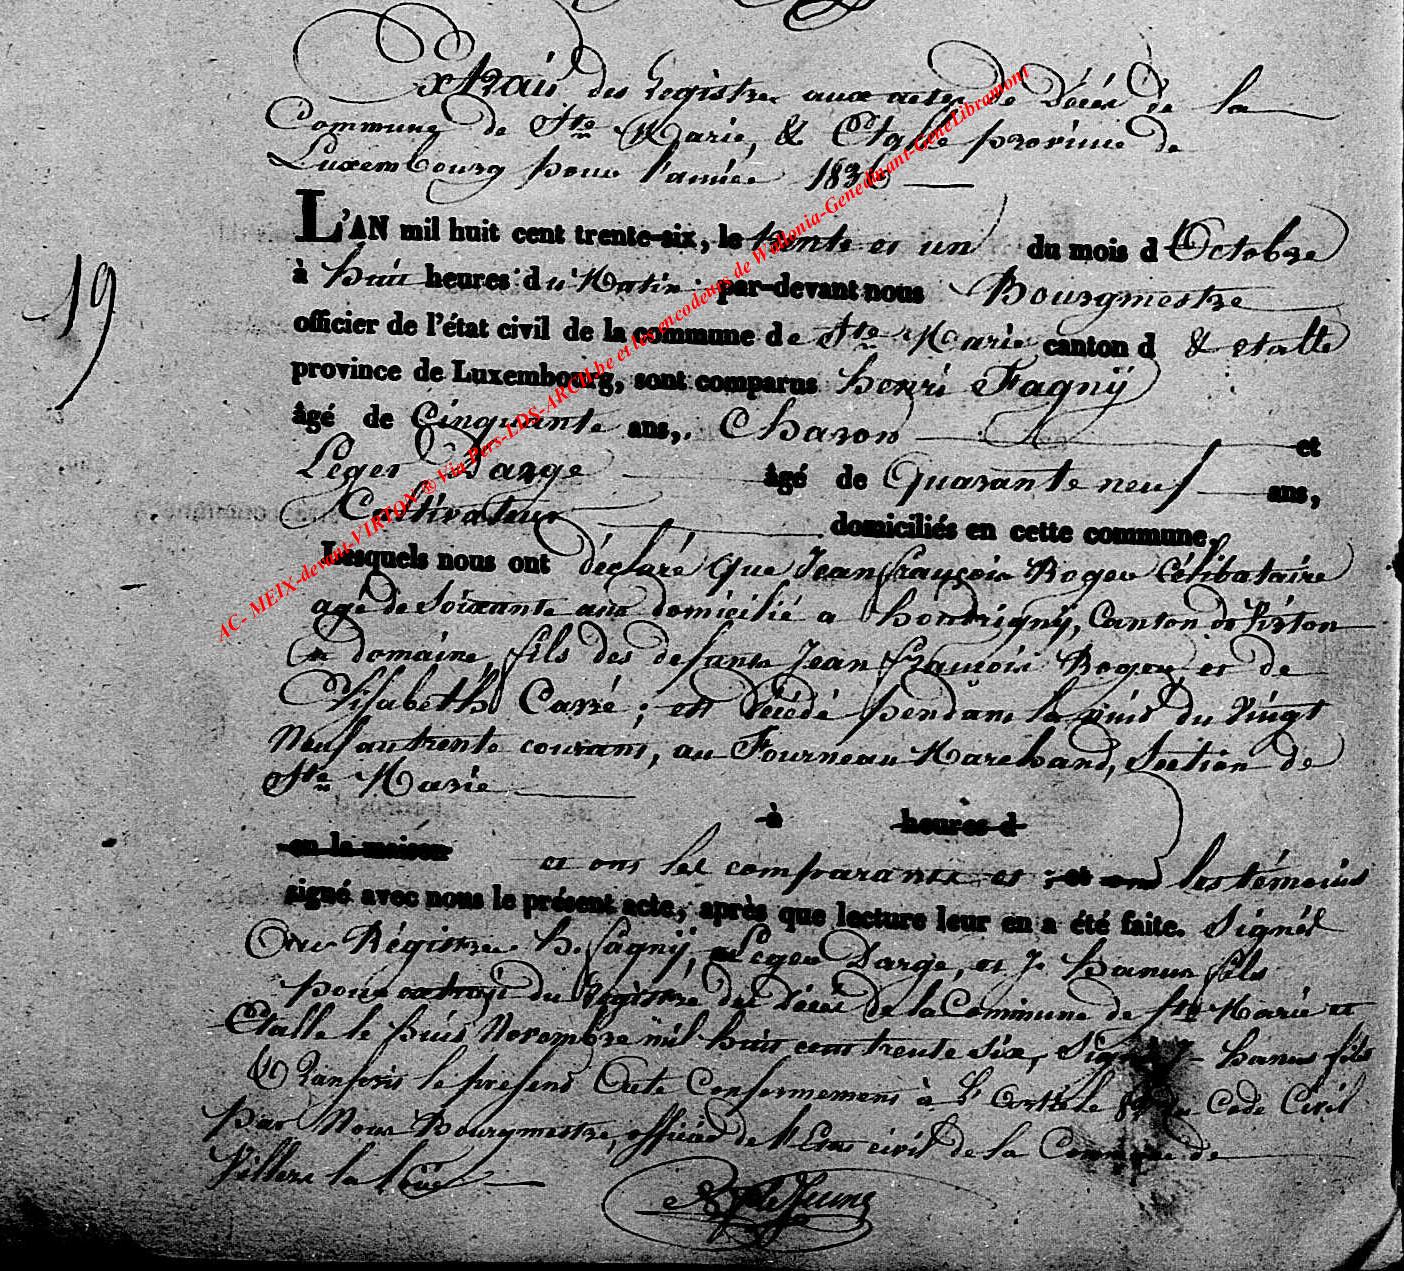 Extrait des Registres aux actes de Décès de la
Commune de Ste Marie, & Etalle province de
Luxembourg pour l'année 1836
L'AN mil huit cent trente-six, le trente et un du mois d'Octobre
à huit heures du Matin par-devant nous Bourgmestre
officier de l'état civil de la commune de Ste Marie canton d & etalle
19
province de Luxembourg, sont comparus henri Fagnÿ
âgé de Cinquante ans, Charon et
Leger Darge âgé de Quarante neuf ans,
Cultivateur domiciliés en cette commune,
Lesquels nous ont déclaré que Jean françois Roger Célibataire
agé de Soixante ans domicilié a houdrignÿ, Canton de Virton
domaine, fils des defunts Jean françois Roger et de
Elisabeth Carré ; est décédé pendant la nuit du Vingt
Neuf au trente courant, au Fourneau Marchand, Section de
Ste Marie
à heures d
en la maison
et ont les comparants et et ont les témoins
signé avec nous le présent acte, après que lecture leur en a été faite. Signés
au Régistre h. fagnÿ, Leger Darge, et J. hanus fils
pour extrait du Régistre des Décès de la Commune de Ste Marie et
Etalle le huit Novembre mil huit cent trente six, Signé J. hanus fils
Transcris le présent Acte Conformement à l'article du Code Civil
par Nous Bourgmestre, officier de l'Etat civil de la Commune de
Villers la loüe
Lejeune
AC- MEIX-devant-VIRTON ® Via Pers-LDS-ARCH.be et les encodeurs de Wallonia-Genedinant-GeneLibramont